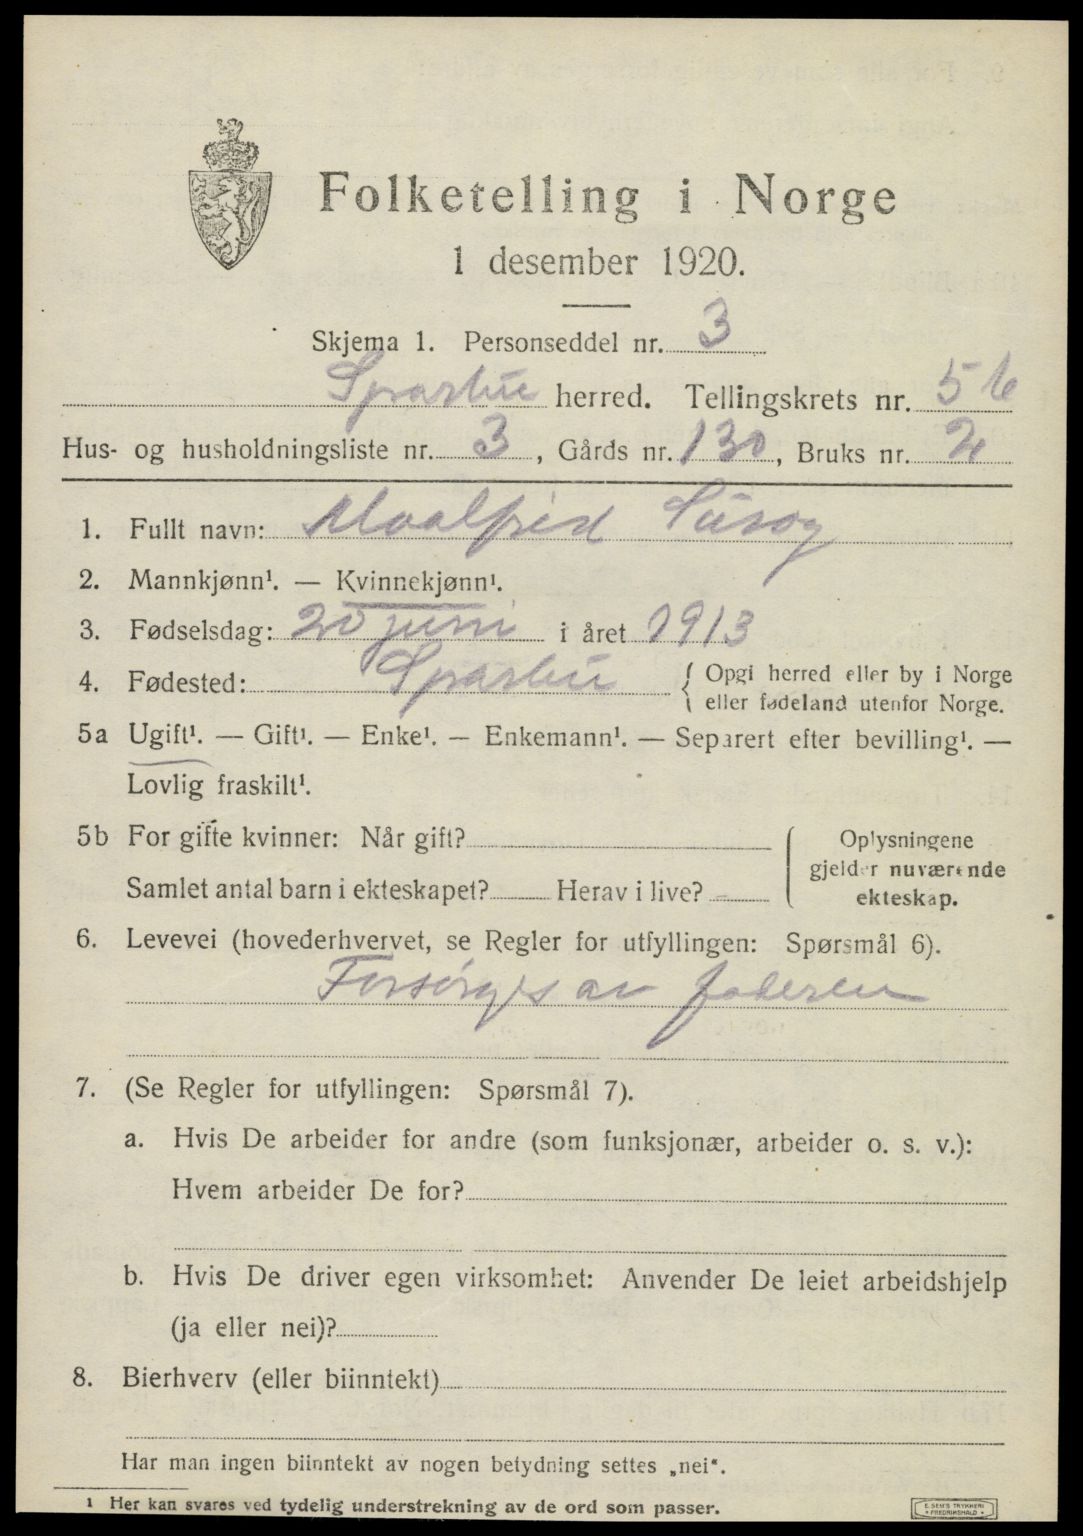 Folketelling i Norge
1 desember 1920.
Skjema 1. Personseddel nr. 3
Sparbu herred. Tellingskrets nr. 5
Hus- og husholdningsliste nr. 3, Gårds nr. 130, Bruks nr. 2
1. Fullt navn:
2. Mannkjønn¹. — Kvinnekjønn¹.
3. Fødselsdag: 20 juni i året 1913
4. Fødested: Sparbu { Opgi herred eller by i Norge
eller fødeland utenfor Norge.
5a Ugift¹. — Gift¹. — Enke¹. — Enkemann¹. — Separert efter bevilling¹. —
Lovlig fraskilt¹.
5b For gifte kvinner: Når gift?
Samlet antal barn i ekteskapet? Herav i live?
Oplysningene
gjelder nuværende
ekteskap.
6. Levevei (hovederhvervet, se Regler for utfyllingen: Spørsmål 6).
Forsørges av faderen
7. (Se Regler for utfyllingen: Spørsmål 7).
a. Hvis De arbeider for andre (som funksjonær, arbeider o. s. v.):
Hvem arbeider De for?
b. Hvis De driver egen virksomhet: Anvender De leiet arbeidshjelp
(ja eller nei)?
8. Bierhverv (eller biinntekt)
Har man ingen biinntekt av nogen betydning settes „nei“.
¹ Her kan svares ved tydelig understrekning av de ord som passer.
E. SEM'S TRYKKERI
FREDRIKSHALD